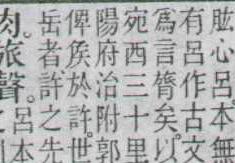 肱心呂本無
有呂作古文
爲言膂矣以
宛西三十里
陽府冶附郭
俾矦於許世
岳者許之先
肉旅聲呂本